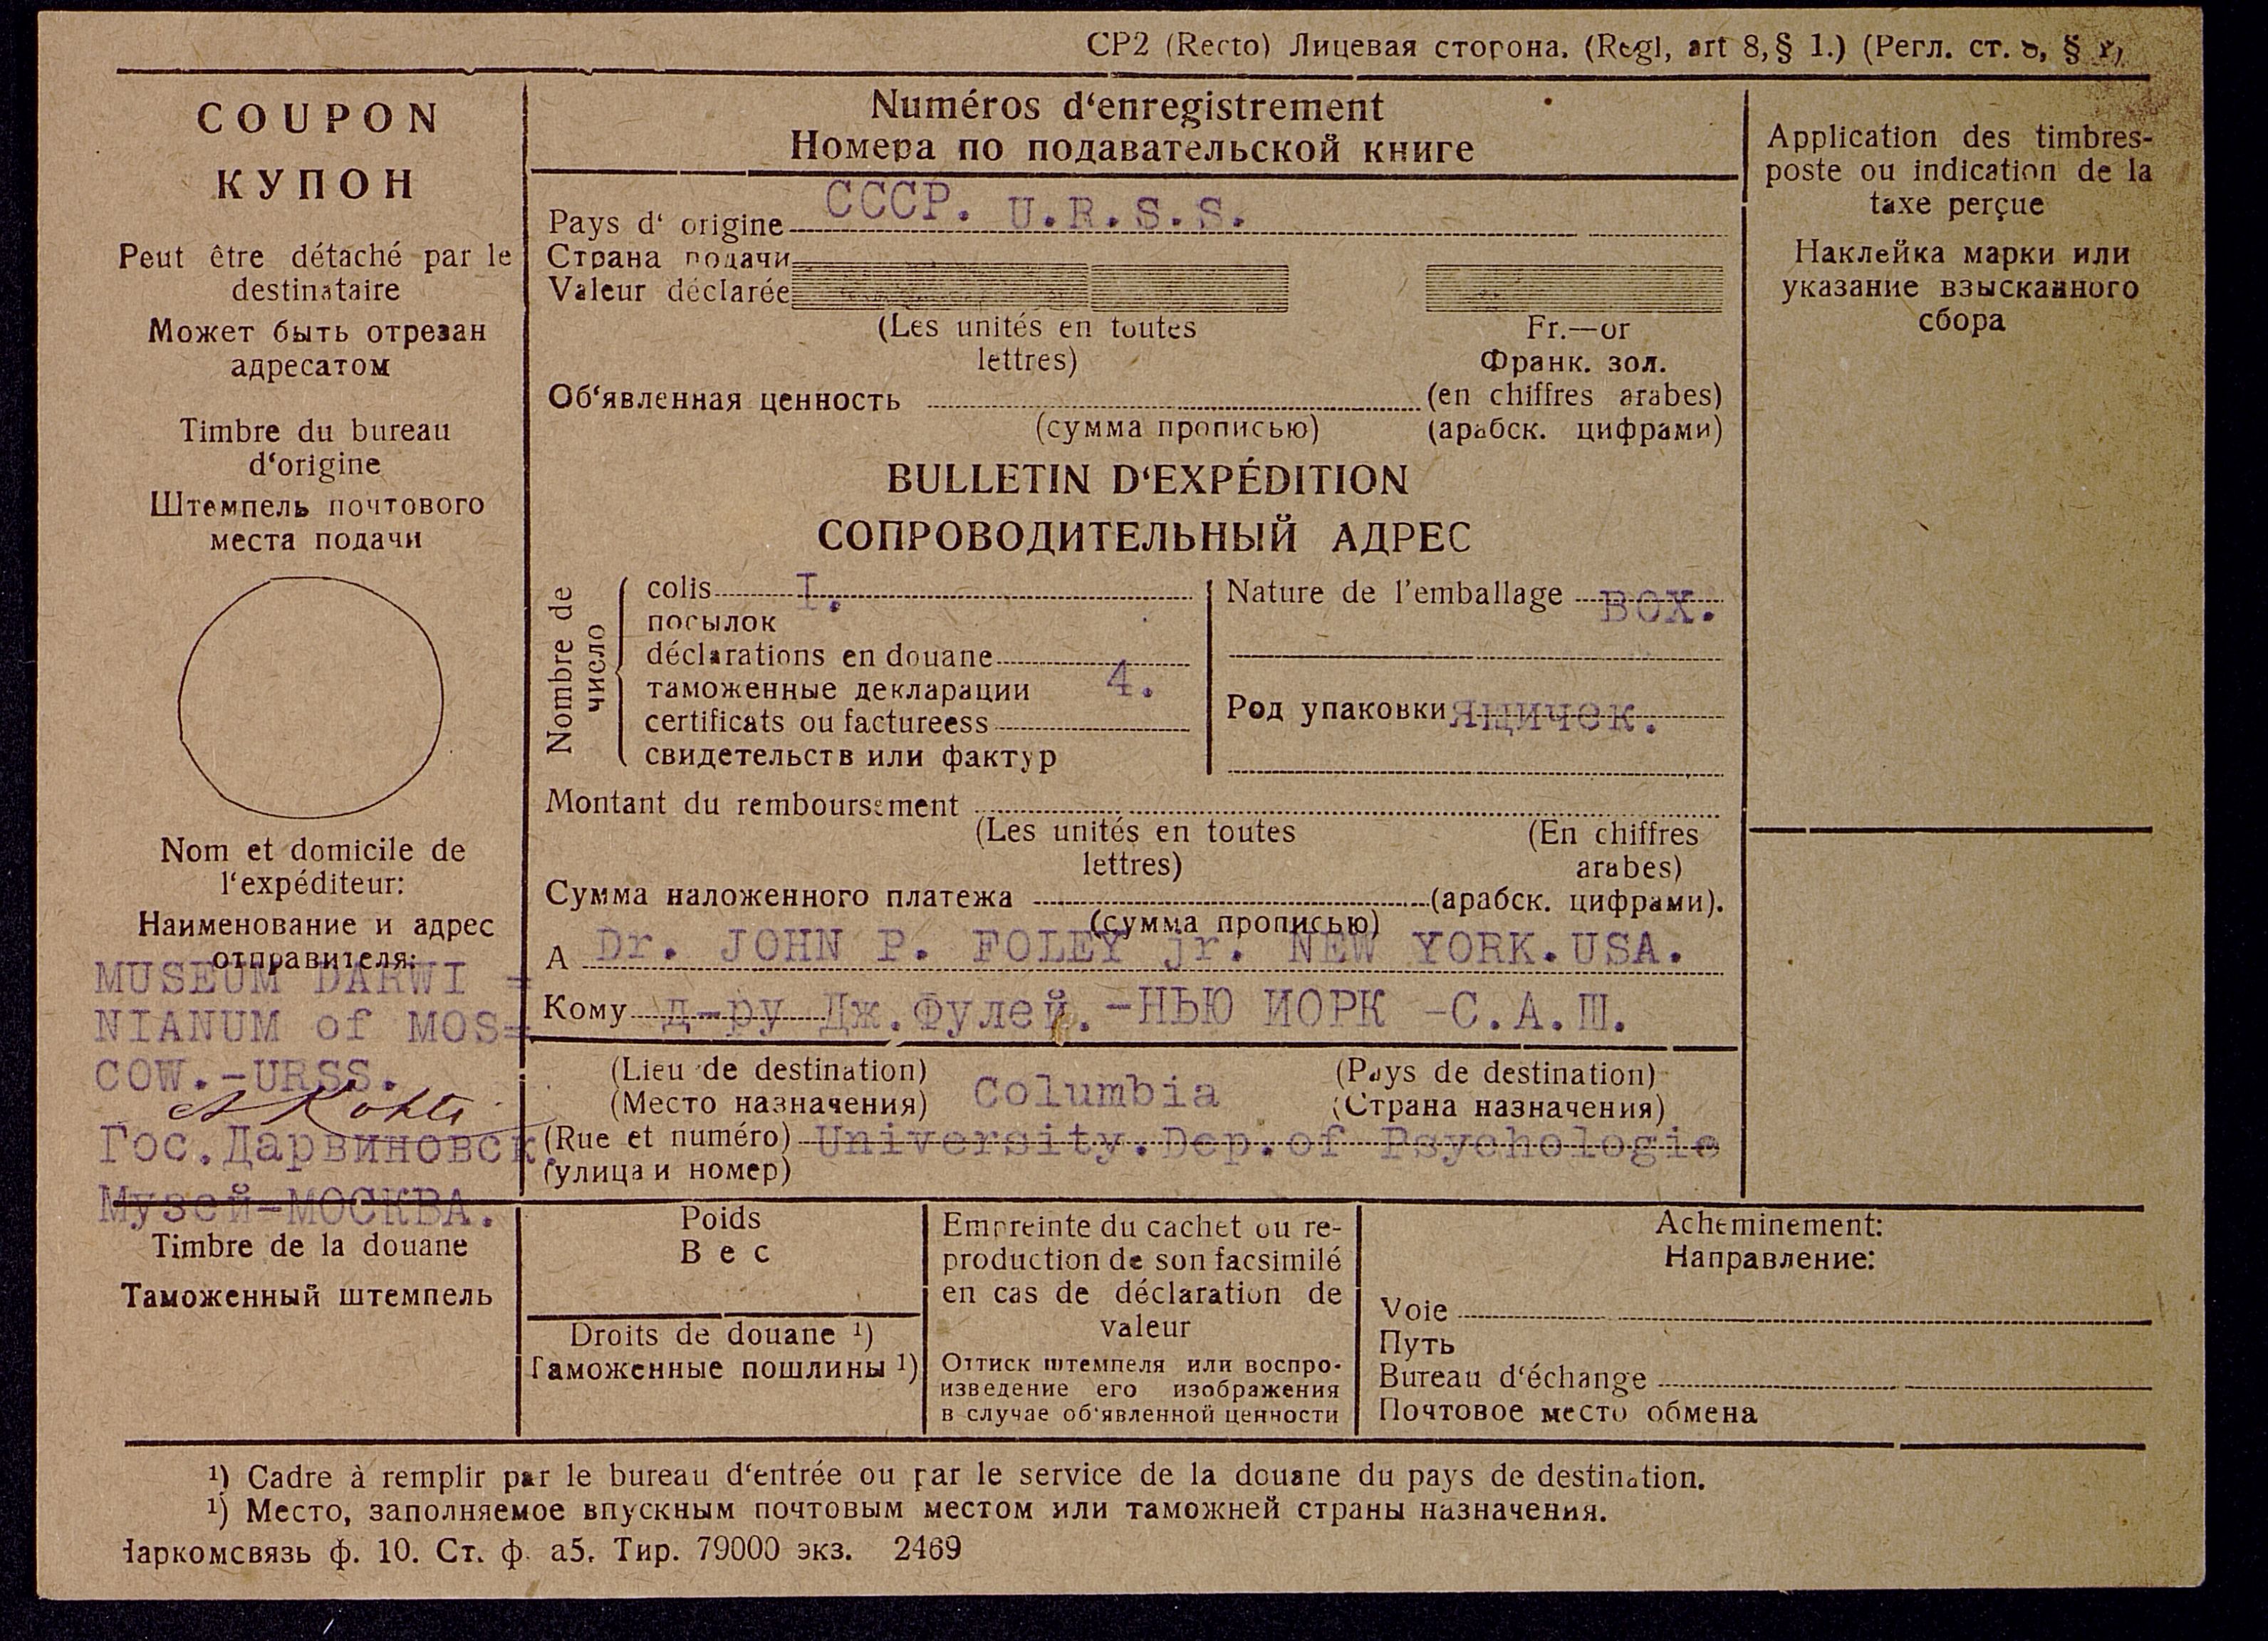 CP2 (Recto) Лицевая сторона. (Regl, art 8, § 1.) (Регл. ст. 8, §
COUPON
КУПОН
Peut être détaché par le
destinataire
Может быть отрезан
адресатом
Timbre du bureau
d'origine
Штемпель почтового
места подачи
Nom et domicile de
l'expéditeur:
Наименование и адрес
отправителя:
MUSEUM DARWI =
NIANUM of MOS=
COW.-URSS.
Гос.Дарвиновск.
Музей-МОСКВА.
Numéros d'enregistrement
Номера по подавательской книге
Pays d' origine СССР. U.R.S.S.
Страна подачи
Valeur déclarée
(Les unités en toutes
lettres)
Fr.—or
Франк. зол.
Об'явленная ценность
(en chiffres arabes)
(сумма прописью)
(арабск. цифрами)
BULLETIN D'EXPÉDITION
СОПРОВОДИТЕЛЬНЫЙ АДРЕС
Nombre de
число
colis I.
посылок
déclarations en douane
таможенные декларации 4.
certificats ou factureess
свидетельств или фактур
Nature de l'emballage BOX.
Род упаковки Ящичек.
Montant du remboursement
(Les unités en toutes
lettres)
(En chiffres
arabes)
Сумма наложенного платежа (арабск. цифрами).
(сумма прописью)
A Dr. JOHN P. FOLEY jr. NEW YORK.USA.
Кому д-ру Дж.Фулей.-НЬЮ ИОРК -С.А.Ш.
(Lieu de destination)
(Место назначения)
Columbia
(Pays de destination)
(Страна назначения)
(Rue et numéro) University.Dep.of Psychologie
(улица и номер)
Application des timbres-
poste ou indication de la
taxe perçue
Наклейка марки или
указание взысканного
сбора
Timbre de la douane
Таможенный штемпель
Poids
Вес
Droits de douane ¹)
Таможенные пошлины ¹)
Empreinte du cachet ou re-
production de son facsimilé
en cas de déclaration de
valeur
Оттиск штемпеля или воспро-
изведение его изображения
в случае об'явленной ценности
Acheminement:
Направление:
Voie
Путь
Bureau d'échange
Почтовое место обмена
¹) Cadre à remplir par le bureau d'entrée ou par le service de la douane du pays de destination.
¹) Место, заполняемое впускным почтовым местом или таможней страны назначения.
Наркомсвязь ф. 10. Ст. ф. а5. Тир. 79000 экз. 2469